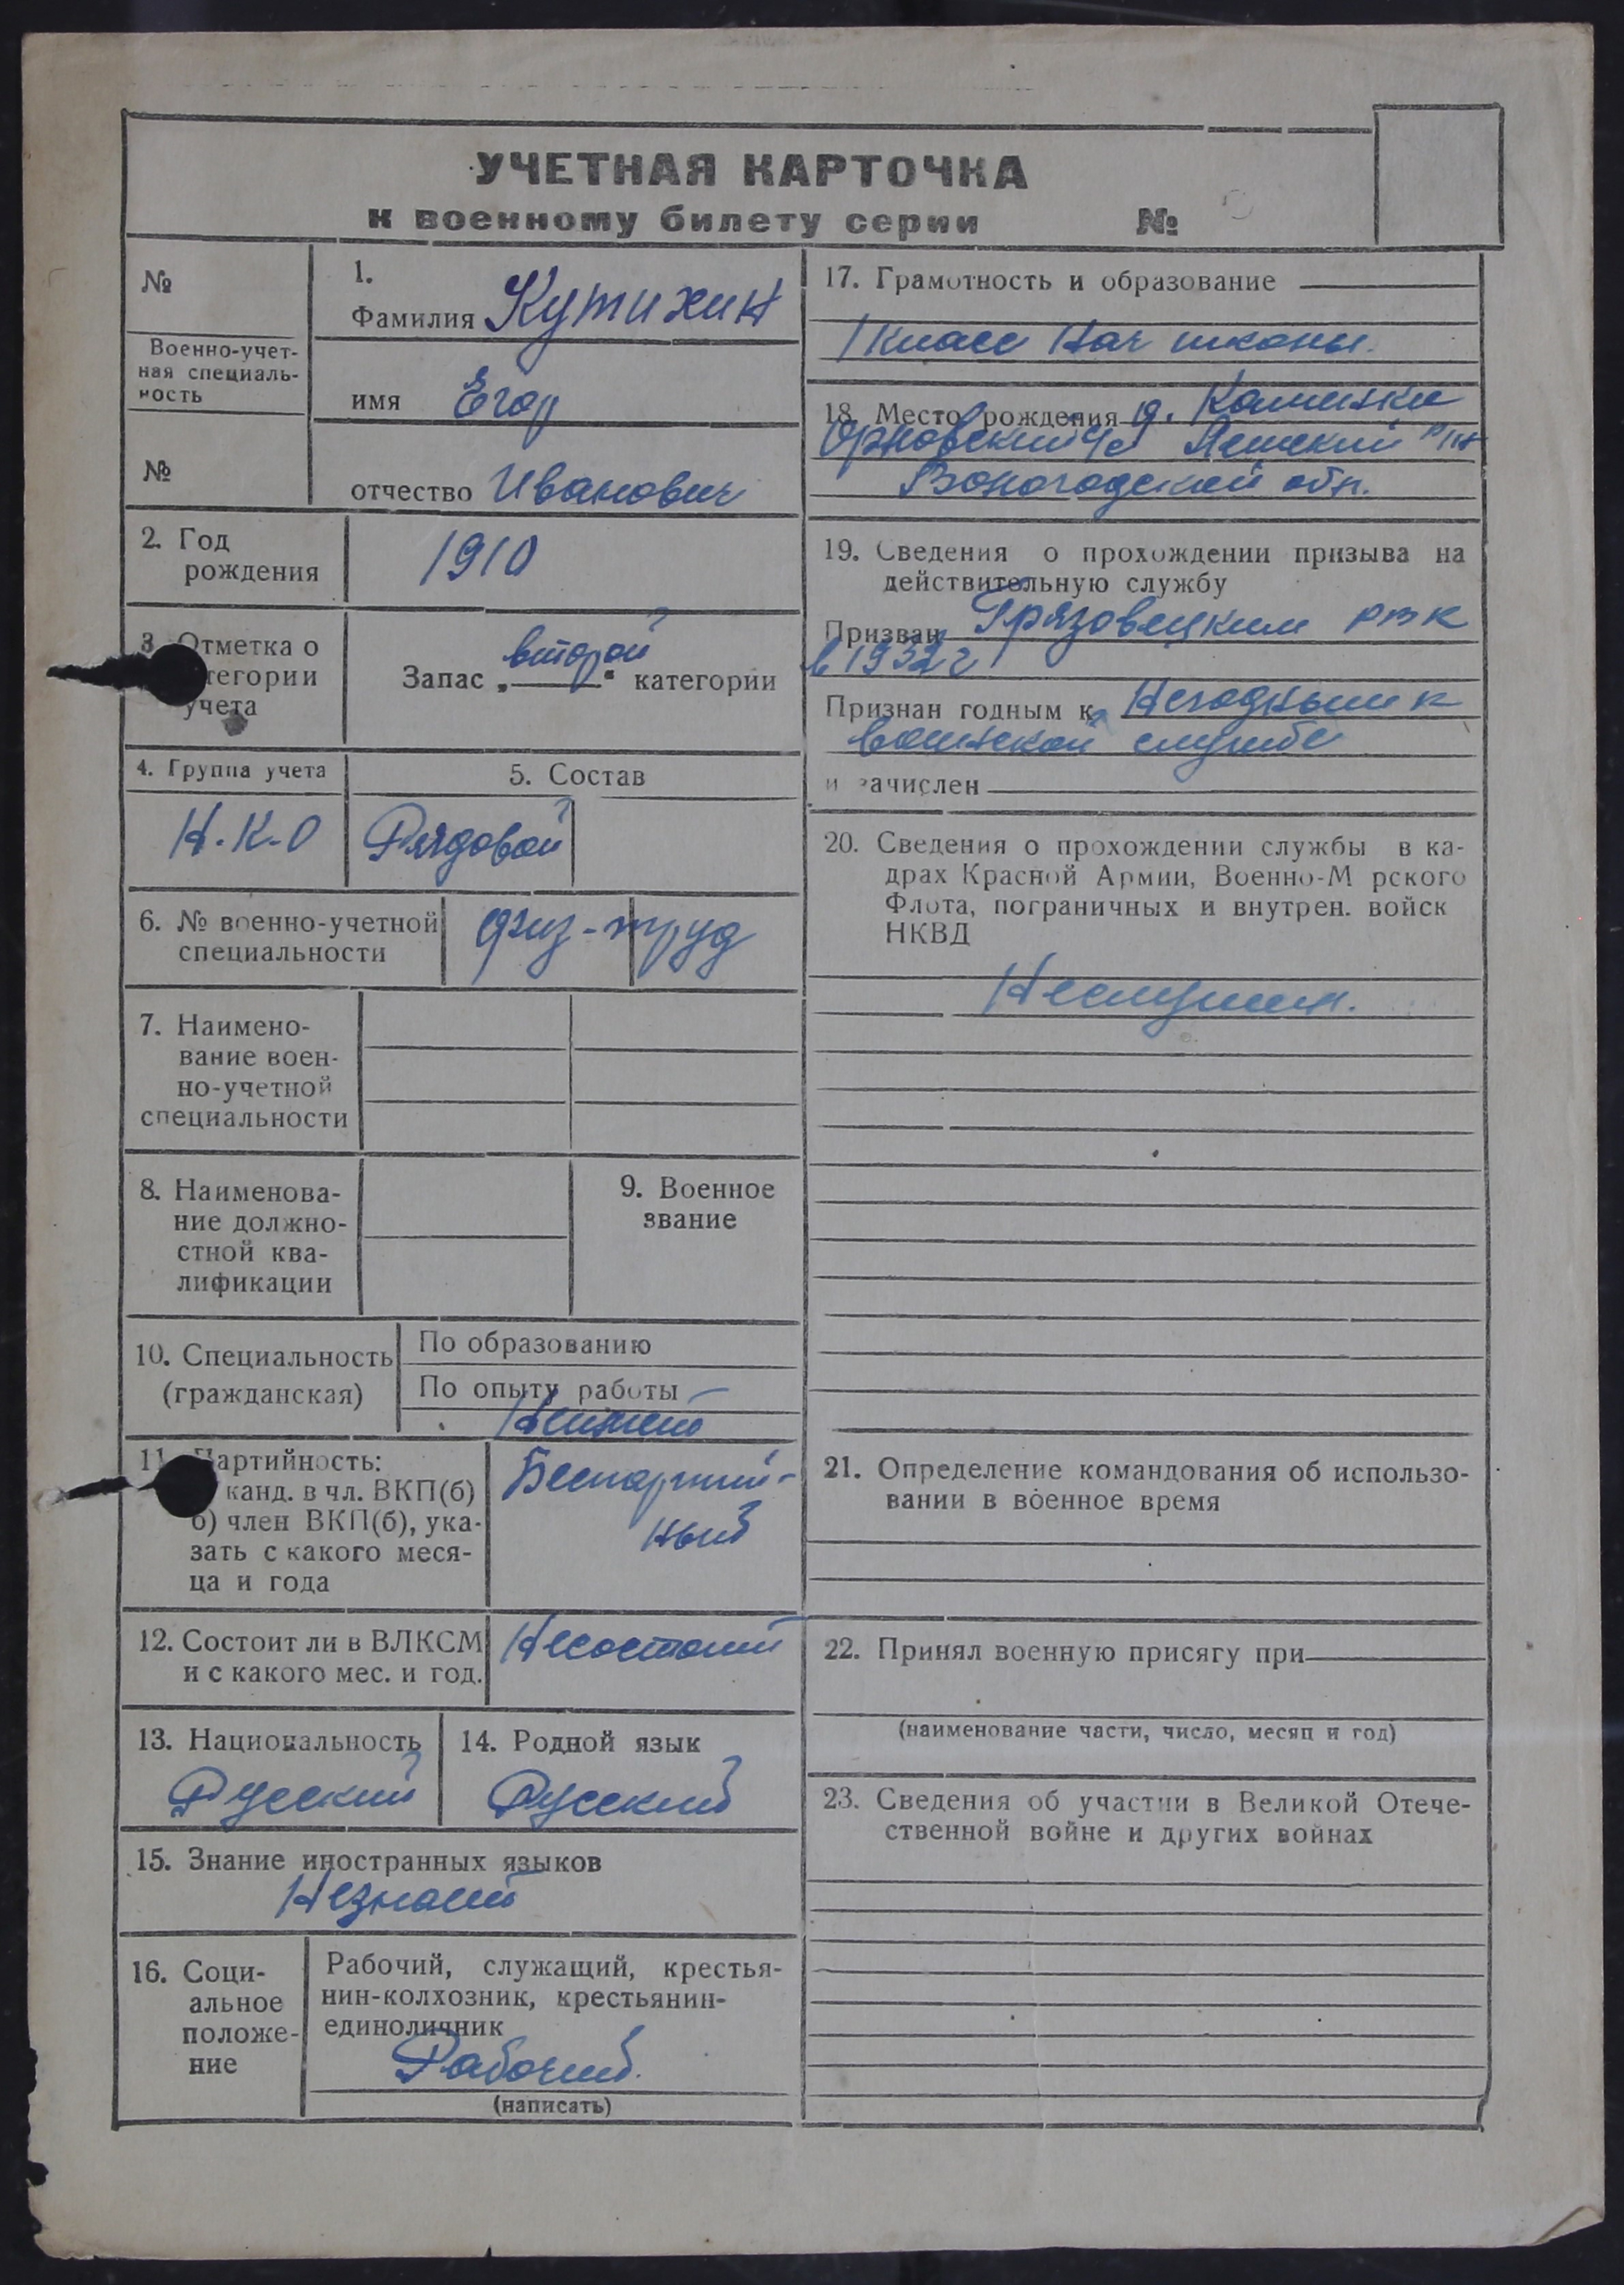 УЧЕТНАЯ КАРТОЧКА
к военному билету серии №
№
Военно-учет-
ная специаль-
ность
№
1.
Фамилия Кутихин
имя Егор
отчество Иванович
2. Год
рождения
1910
3 Отметка о
тегории
учета
Запас „второй“ категории
4. Группа учета
Н.К.О
5. Состав
Рядовой
6. № военно-учетной
специальности
физ-труд
7. Наимено-
вание воен-
но-учетной
специальности
8. Наименова-
ние должно-
стной ква-
лификации
9. Военное
звание
10. Специальность
(гражданская)
По образованию
По опыту работы
Неимеет
11. Партийность:
канд. в чл. ВКП(б)
б) член ВКП(б), ука-
зать с какого меся-
ца и года
Беспартий-
ный
12. Состоит ли в ВЛКСМ
и с какого мес. и год.
Несостоит
13. Национальность
Русский
14. Родной язык
Русский
15. Знание иностранных языков
Незнает
16. Соци-
альное
положе-
ние
Рабочий, служащий, крестья-
нин-колхозник, крестьянин-
единоличник
Рабочий.
(написать)
17. Грамотность и образование
1 класс Нач школы.
18. Место рождения д.
с/с р/н
Вологодской обл.
19. Сведения о прохождении призыва на
действительную службу
Призван Грязовецким РВК
в 1932 г
Признан годным к Негодным к
воинской службе
и зачислен
20. Сведения о прохождении службы в ка-
драх Красной Армии, Военно-М рского
Флота, пограничных и внутрен. войск
НКВД
Неслужил.
21. Определение командования об использо-
вании в военное время
22. Принял военную присягу при
(наименование части, число, месяц и год)
23. Сведения об участии в Великой Отече-
ственной войне и других войнах